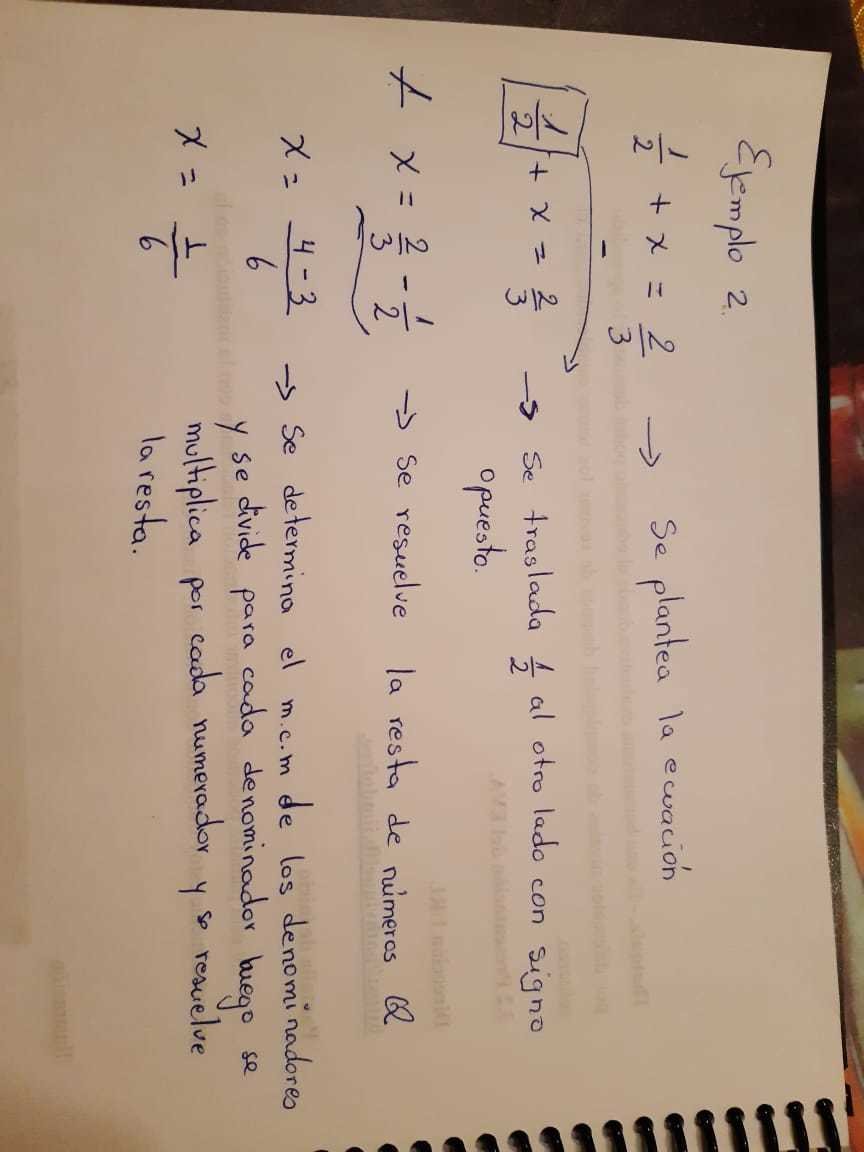 Ejemplo 2.
1/2 + x = 2/3 → Se plantea la ecuación
1/2 + x = 2/3 → Se traslada 1/2 al otro lado con signo
opuesto.
x = 2/3 - 1/2 → se resuelve la resta de números Q
x = 4-3/6 → Se determina el m.c.m de los denominadores
y se divide para cada denominador luego se
multiplica por cada numerador y se resuelve
la resta.
x = 1/6